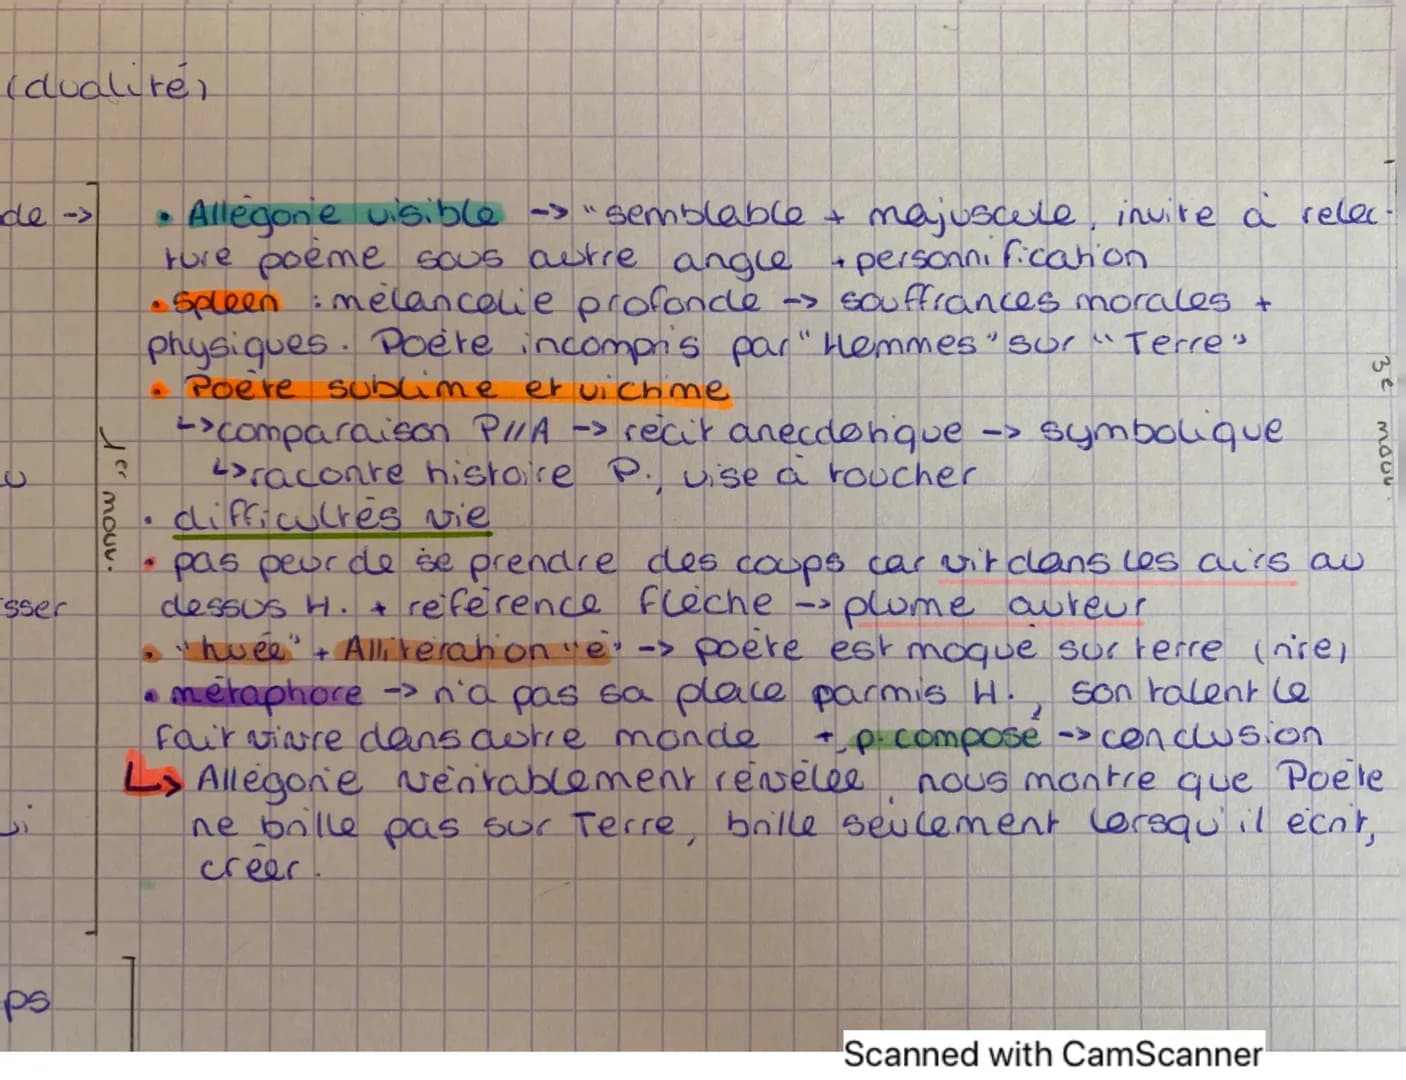 (dualité)
de -> • Allégorie visible -> "semblable + majuscule, invite à relec-
ture poème sous autre angle + personnification
• Spleen : mélancolie profonde -> souffrances morales +
physiques. Poète incompris par "Hommes" sur "Terre"
• Poète sublime et victime
↳ comparaison P//A -> récit anecdotique -> symbolique
↳ raconte histoire P., vise à toucher
• difficultés vie
• pas peur de se prendre des coups car vit dans les airs au
sser dessus H. + référence flèche -> plume auteur
• "huée" + Allitération "é" -> poète est moqué sur terre (rire)
• métaphore -> n'a pas sa place parmis H., son talent le
fait vivre dans autre monde + p. composé -> conclusion
↳ Allégorie véritablement révélée, nous montre que Poète
ne brille pas sur Terre, brille seulement lorsqu'il écrit,
créer.
ps
1er mouv.
3e mouv.
Scanned with CamScanner